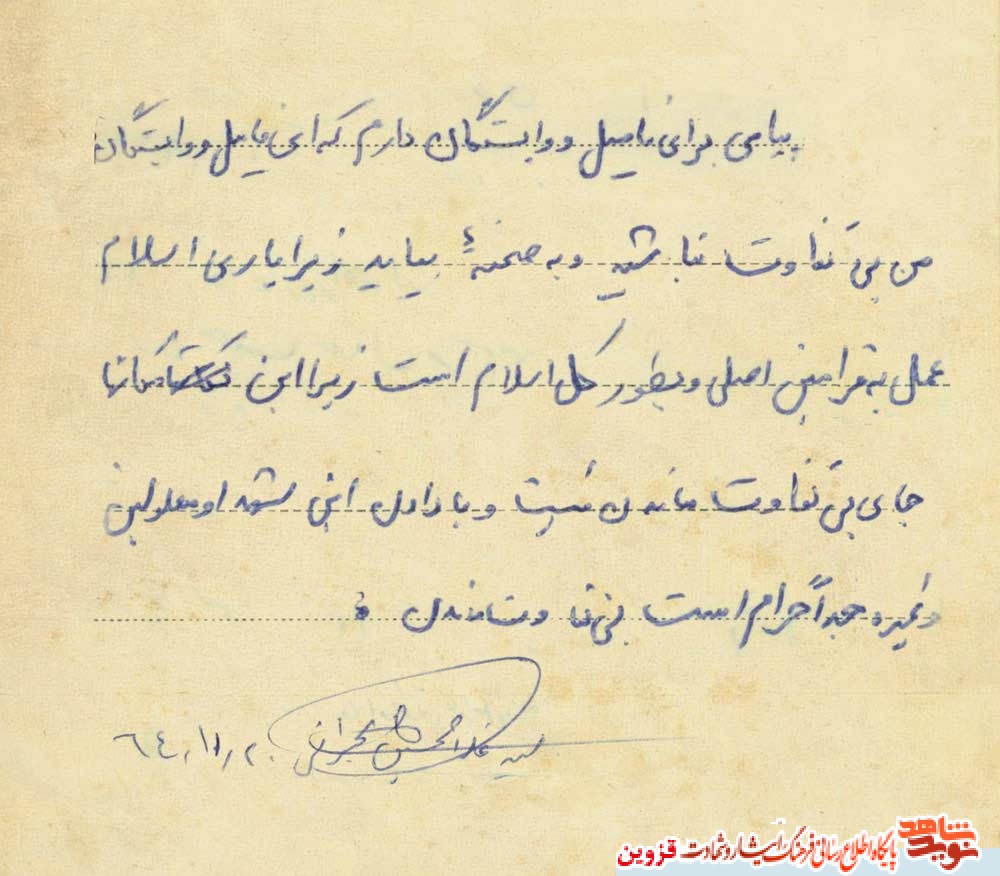 پیامی برای فامیل و وابستگان دارم که ای فامیل و وابستگان
من بی تفاوت نباشید و به صحنهٔ بیاید زیرا یاری اسلام
عمل به فرامین اصلی و بطور کل اسلام است زیرا این
جای بی تفاوت ماندن نیست و با دادن این شهدا و معلولین
و غیره جداً حرام است بی تفاوت ماندن
سید غلامحسین
٦٤/١١/٢٠
نوید شاهد
پایگاه اطلاع رسانی فرهنگ ایثار و شهادت قزوین